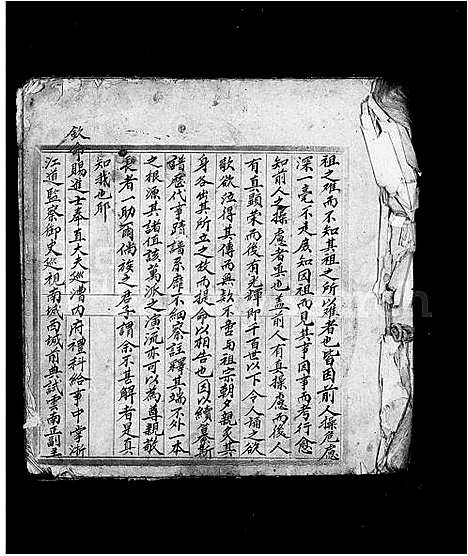 祖之难而不知其祖之所以难者也皆因前人操危慮
深一毫不走底知因祖而见其事因事而考行愈
知前人之操慮者真也盖前人有真操慮而後人
有真顯荣而後有光輝即千百世以下令人诵之欲
歌欲泣得其傳而無欺不啻与祖宗朝夕親炙其
身各出其所立之故而提命以相告也因以續纂斯
譜歷代事蹟譜系靡不细察註釋其端不外一本
之根源其诸值該萬派之演流亦可以為尊親敬
長者一助爾倘族之君子謂余不甚解者是真
知我也耶
欽命賜進士奉直大夫巡漕内府禮科给事中掌浙
江道监察御史巡视南城西城前典試雲南正副主